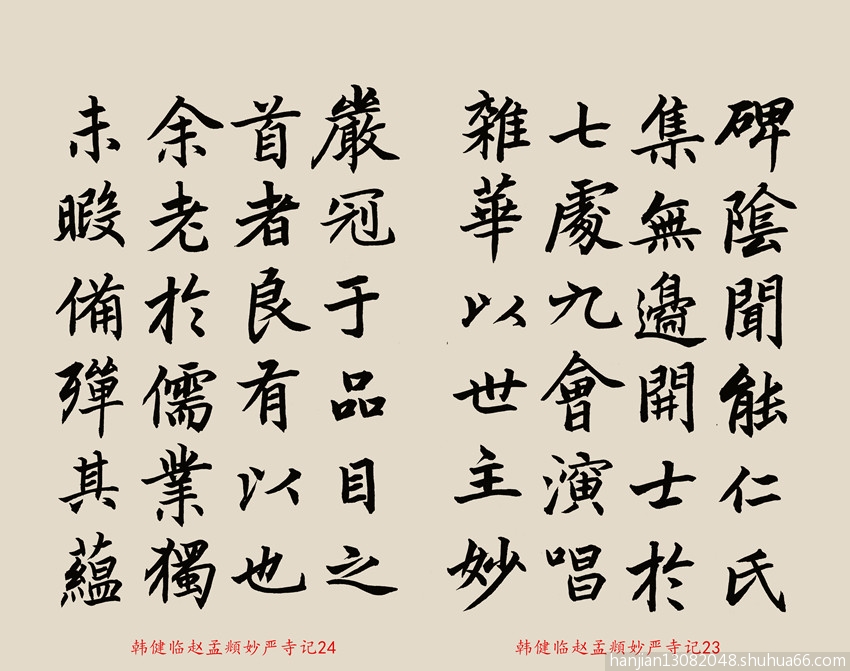 碑陰聞能仁氏
集無邊開士於
七處九會演唱
雜華以世主妙
嚴冠于品目之
首者良有以也
余老於儒業獨
未暇備殫其蘊
韩健临赵孟頫妙严寺记24
韩健临赵孟頫妙严寺记23
hanjian13082048.shuhua66.com